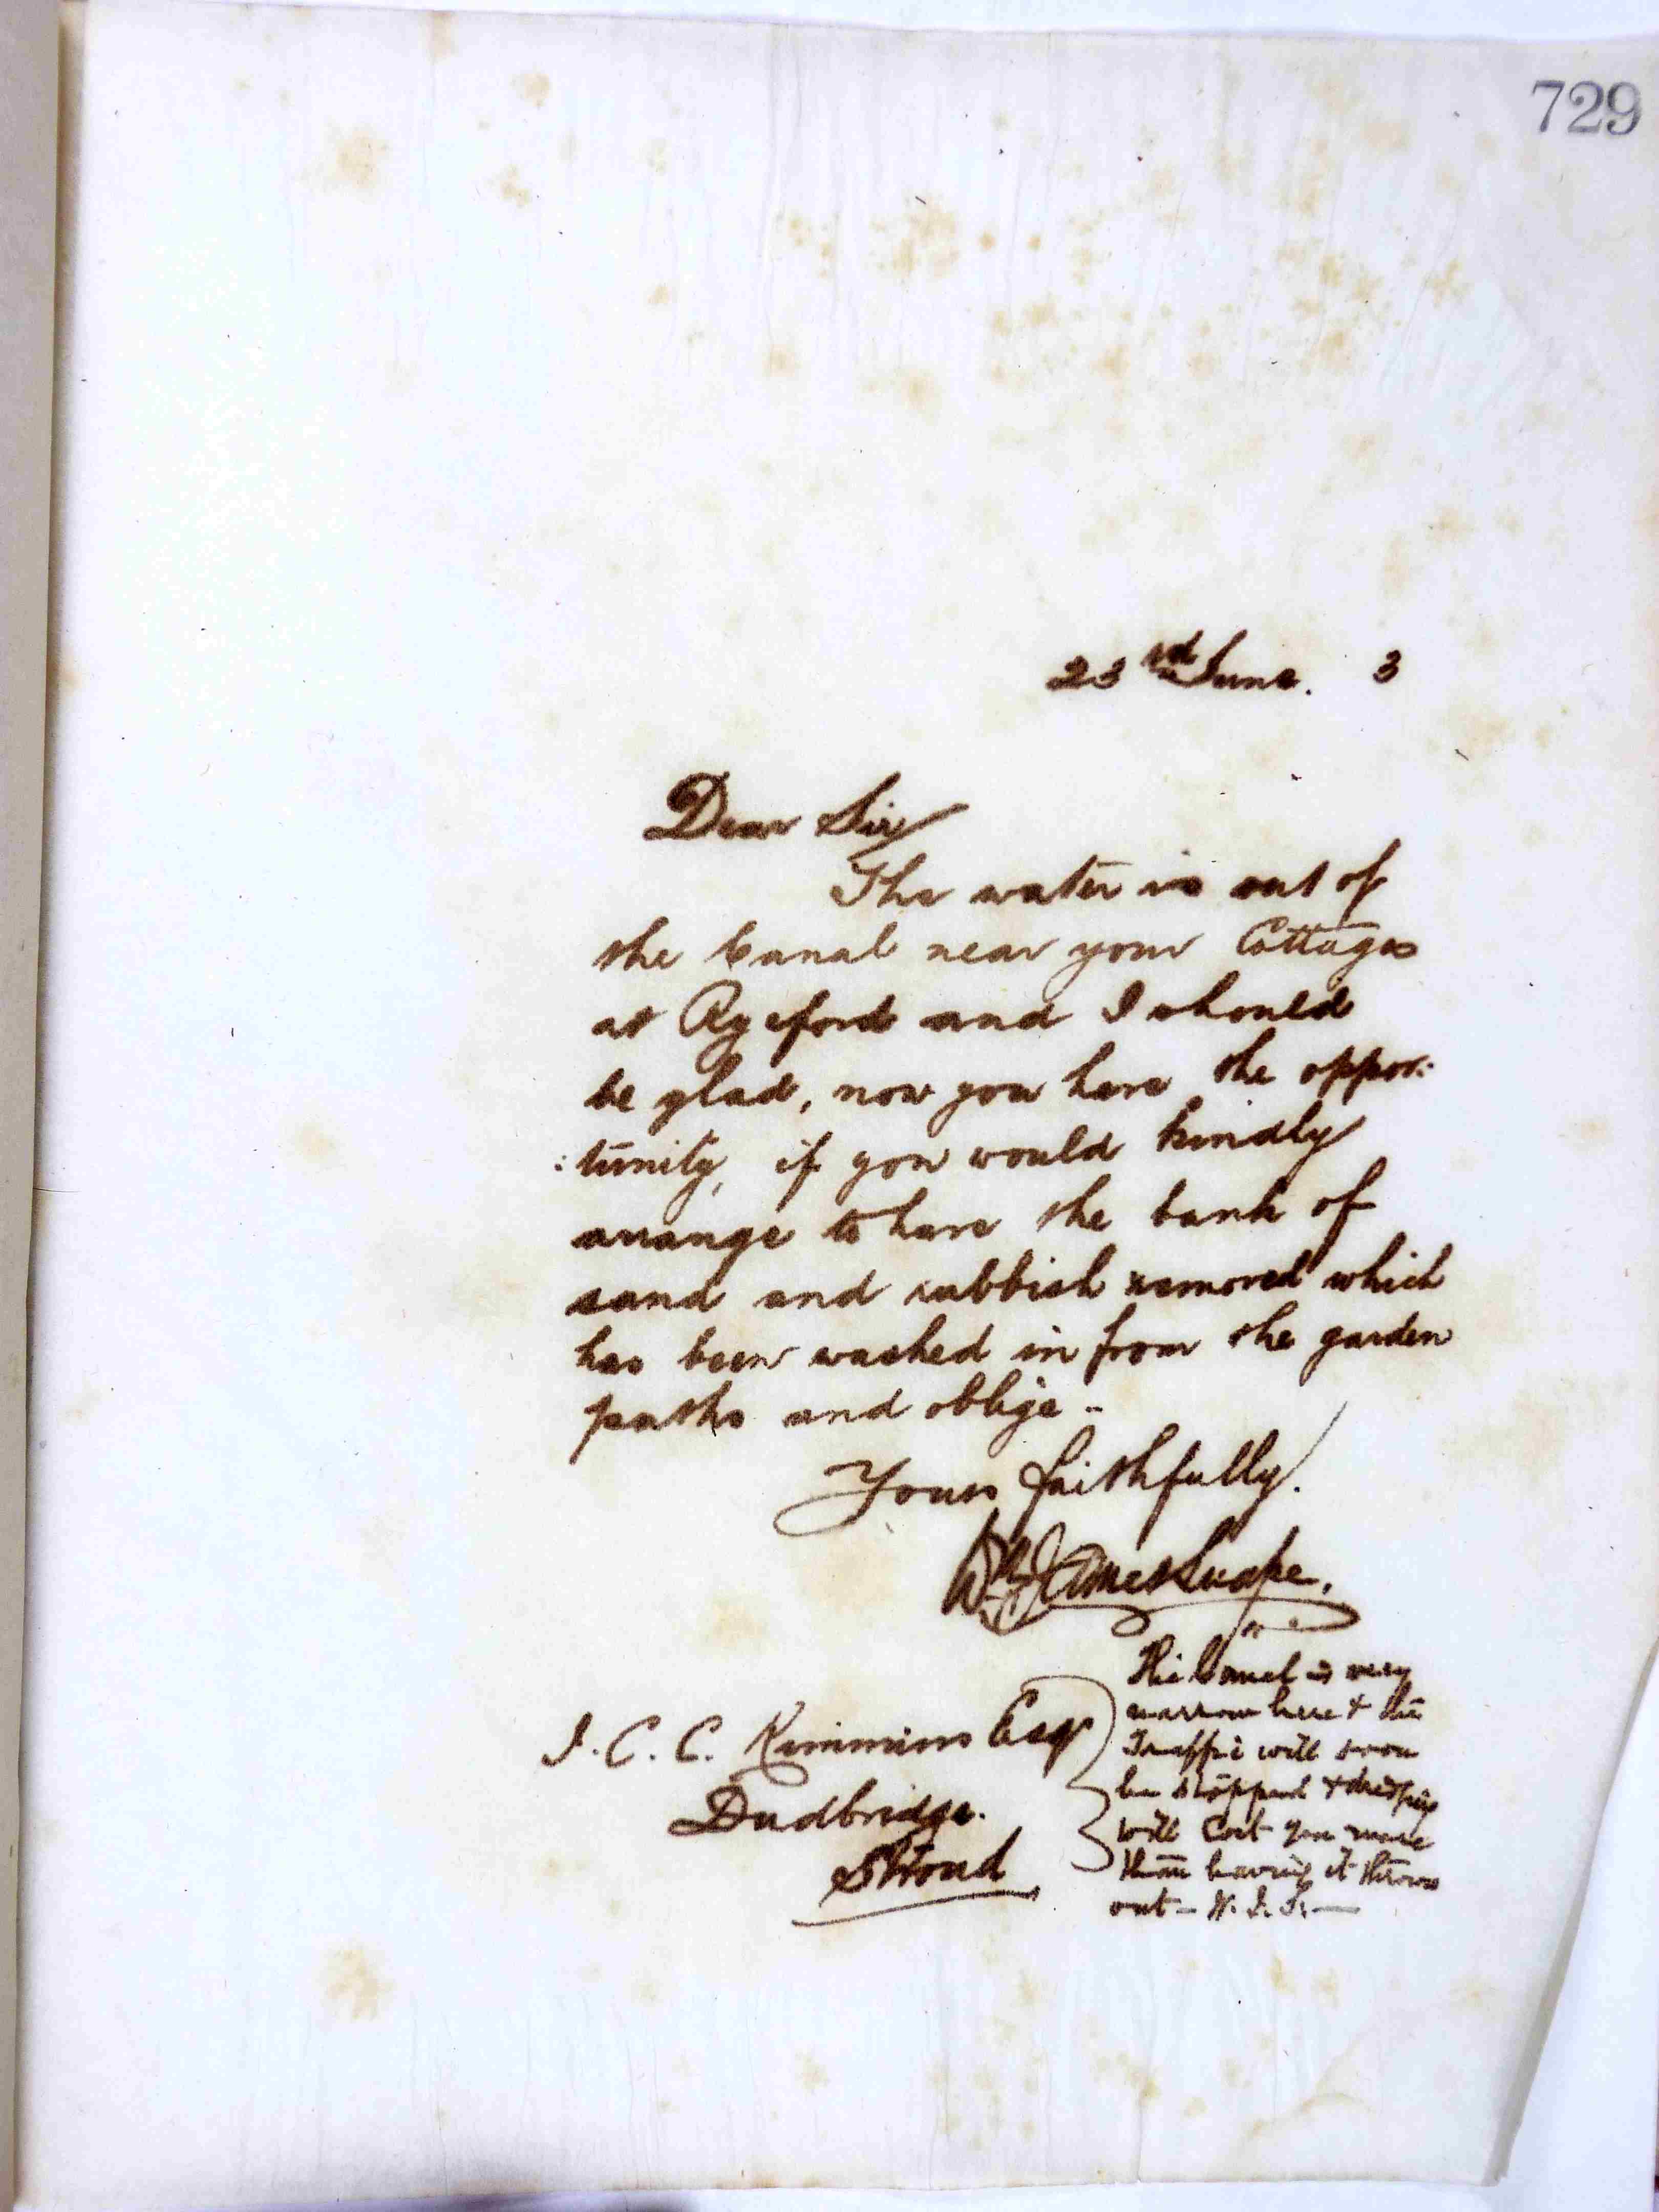 729
23rd June. 3
Dear Sir
The water is out of
the Canal near your Cottages
at Ryeford and I should
be glad, now you have the oppor:
:tunity, if you would kindly
arrange to have the bank of
sand and rubbish removed which
has been washed in from the garden
paths and oblige -
Yours faithfully.
Wm James Snape.
J. C. C. Kimmins Esqr
Dudbridge.
Stroud
The Canal is very
narrow here & the
Traffic will soon
be stopped & dredging
will cost you more
than having it thrown
out - W. J. S. -